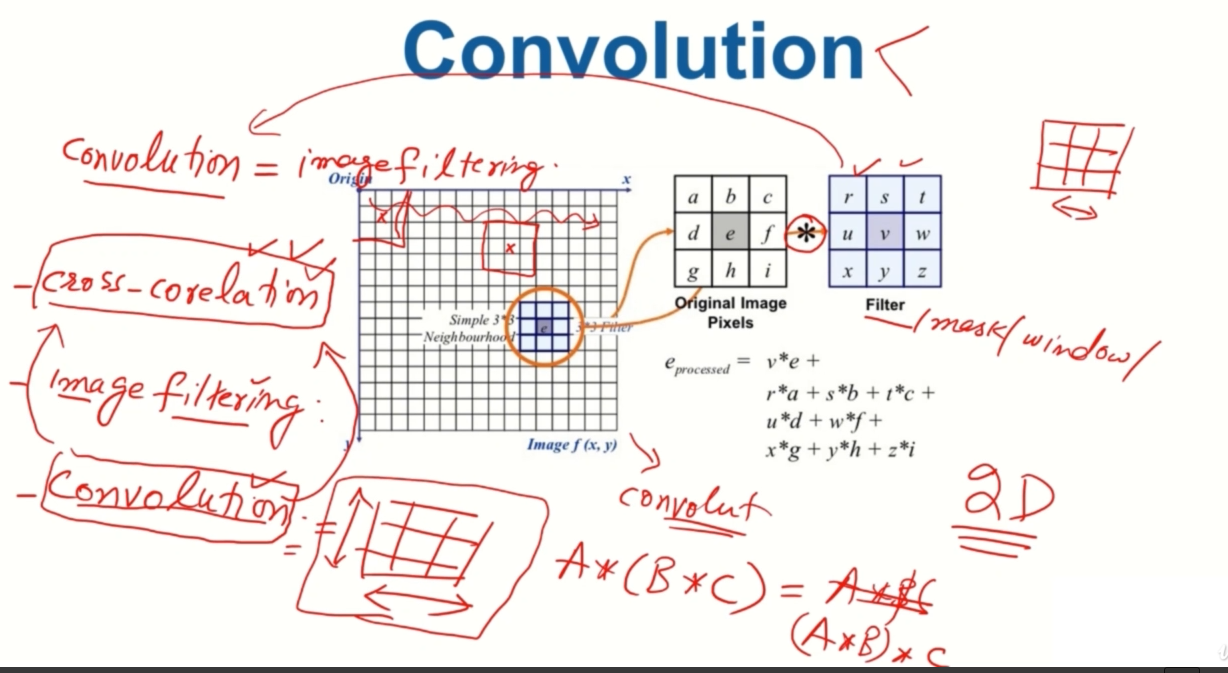 Convolution
Convolution = image filtering.
Origin
x
a b c
d e f
g h i
*
r s t
u v w
x y z
Original Image
Pixels
Filter
/mask/window/
- cross-corelation
Simple 3*3
Neighbourhood
e
3*3 Filter
x
x
- Image filtering:
e processed = v*e +
r*a + s*b + t*c +
u*d + w*f +
x*g + y*h + z*i
y
Image f (x, y)
- Convolution. =
=
convolut
2D
A*(B*C) =
(A*B)*C